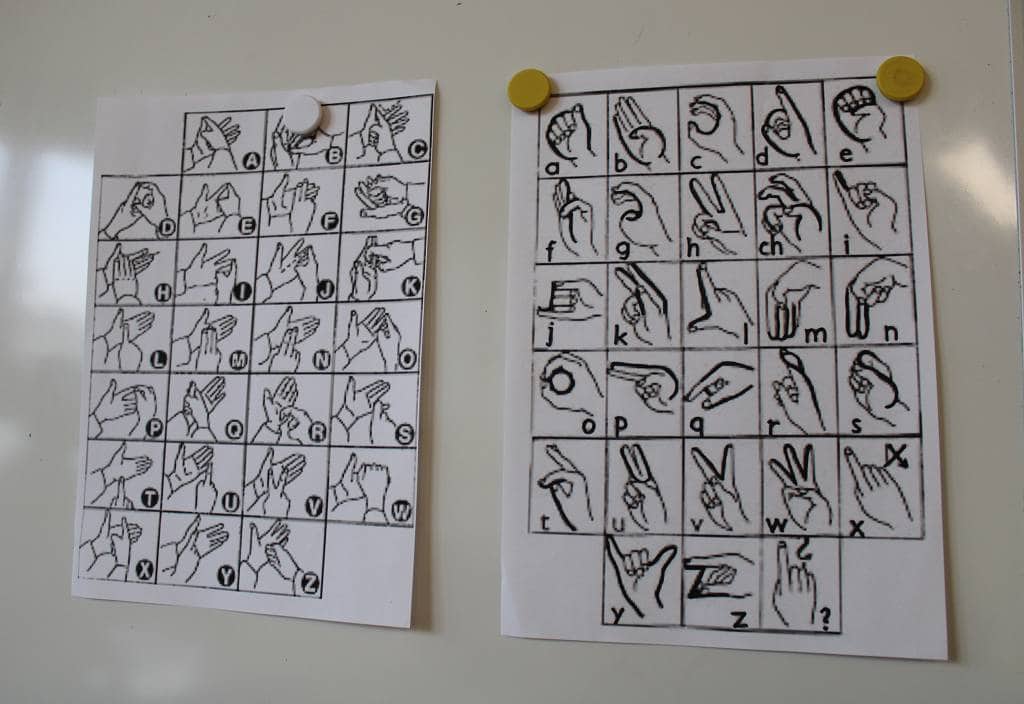 A B C
D E F G
H I J K
L M N O
P Q R S
T U V W
X Y Z
a b c d e
f g h ch i
j k l m n
o p q r s
t u v w x
y z ?